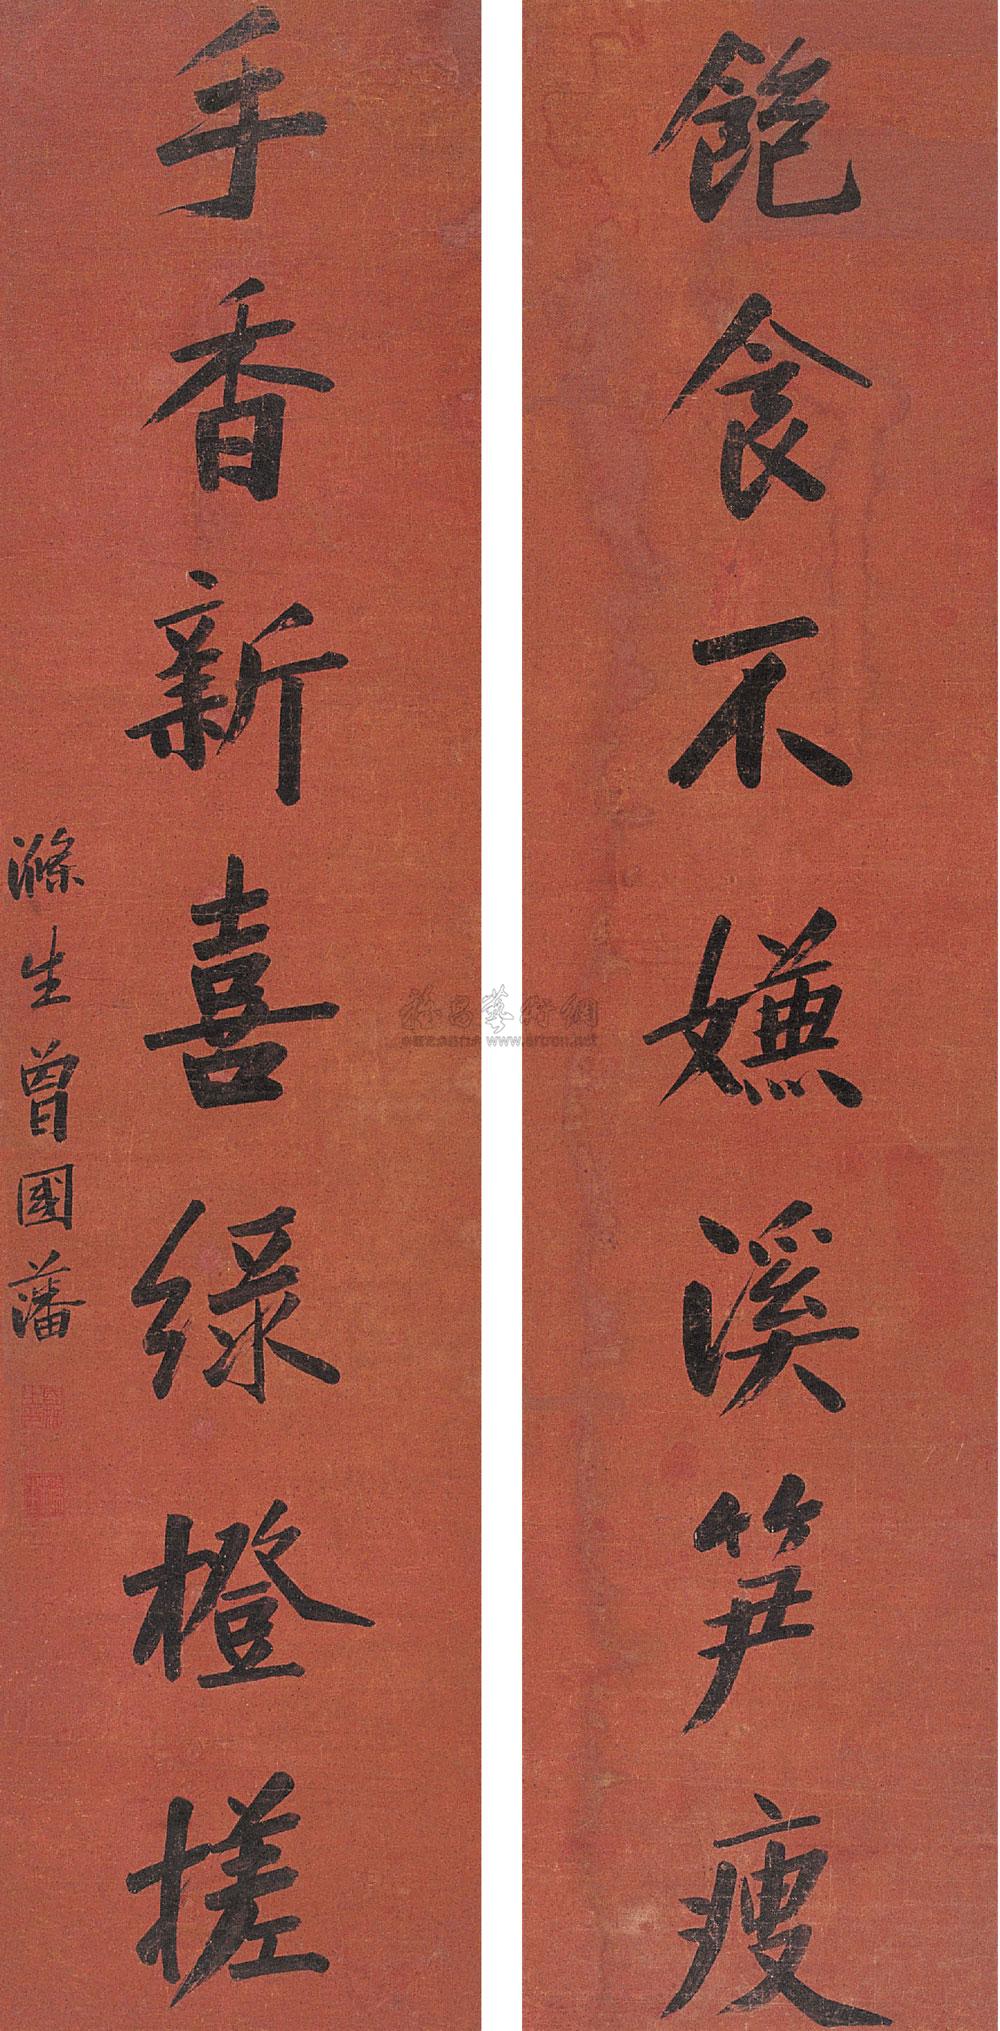 飽食不嫌溪笋瘦
手香新喜綠橙搓
滌生曾國藩
www.artron.net